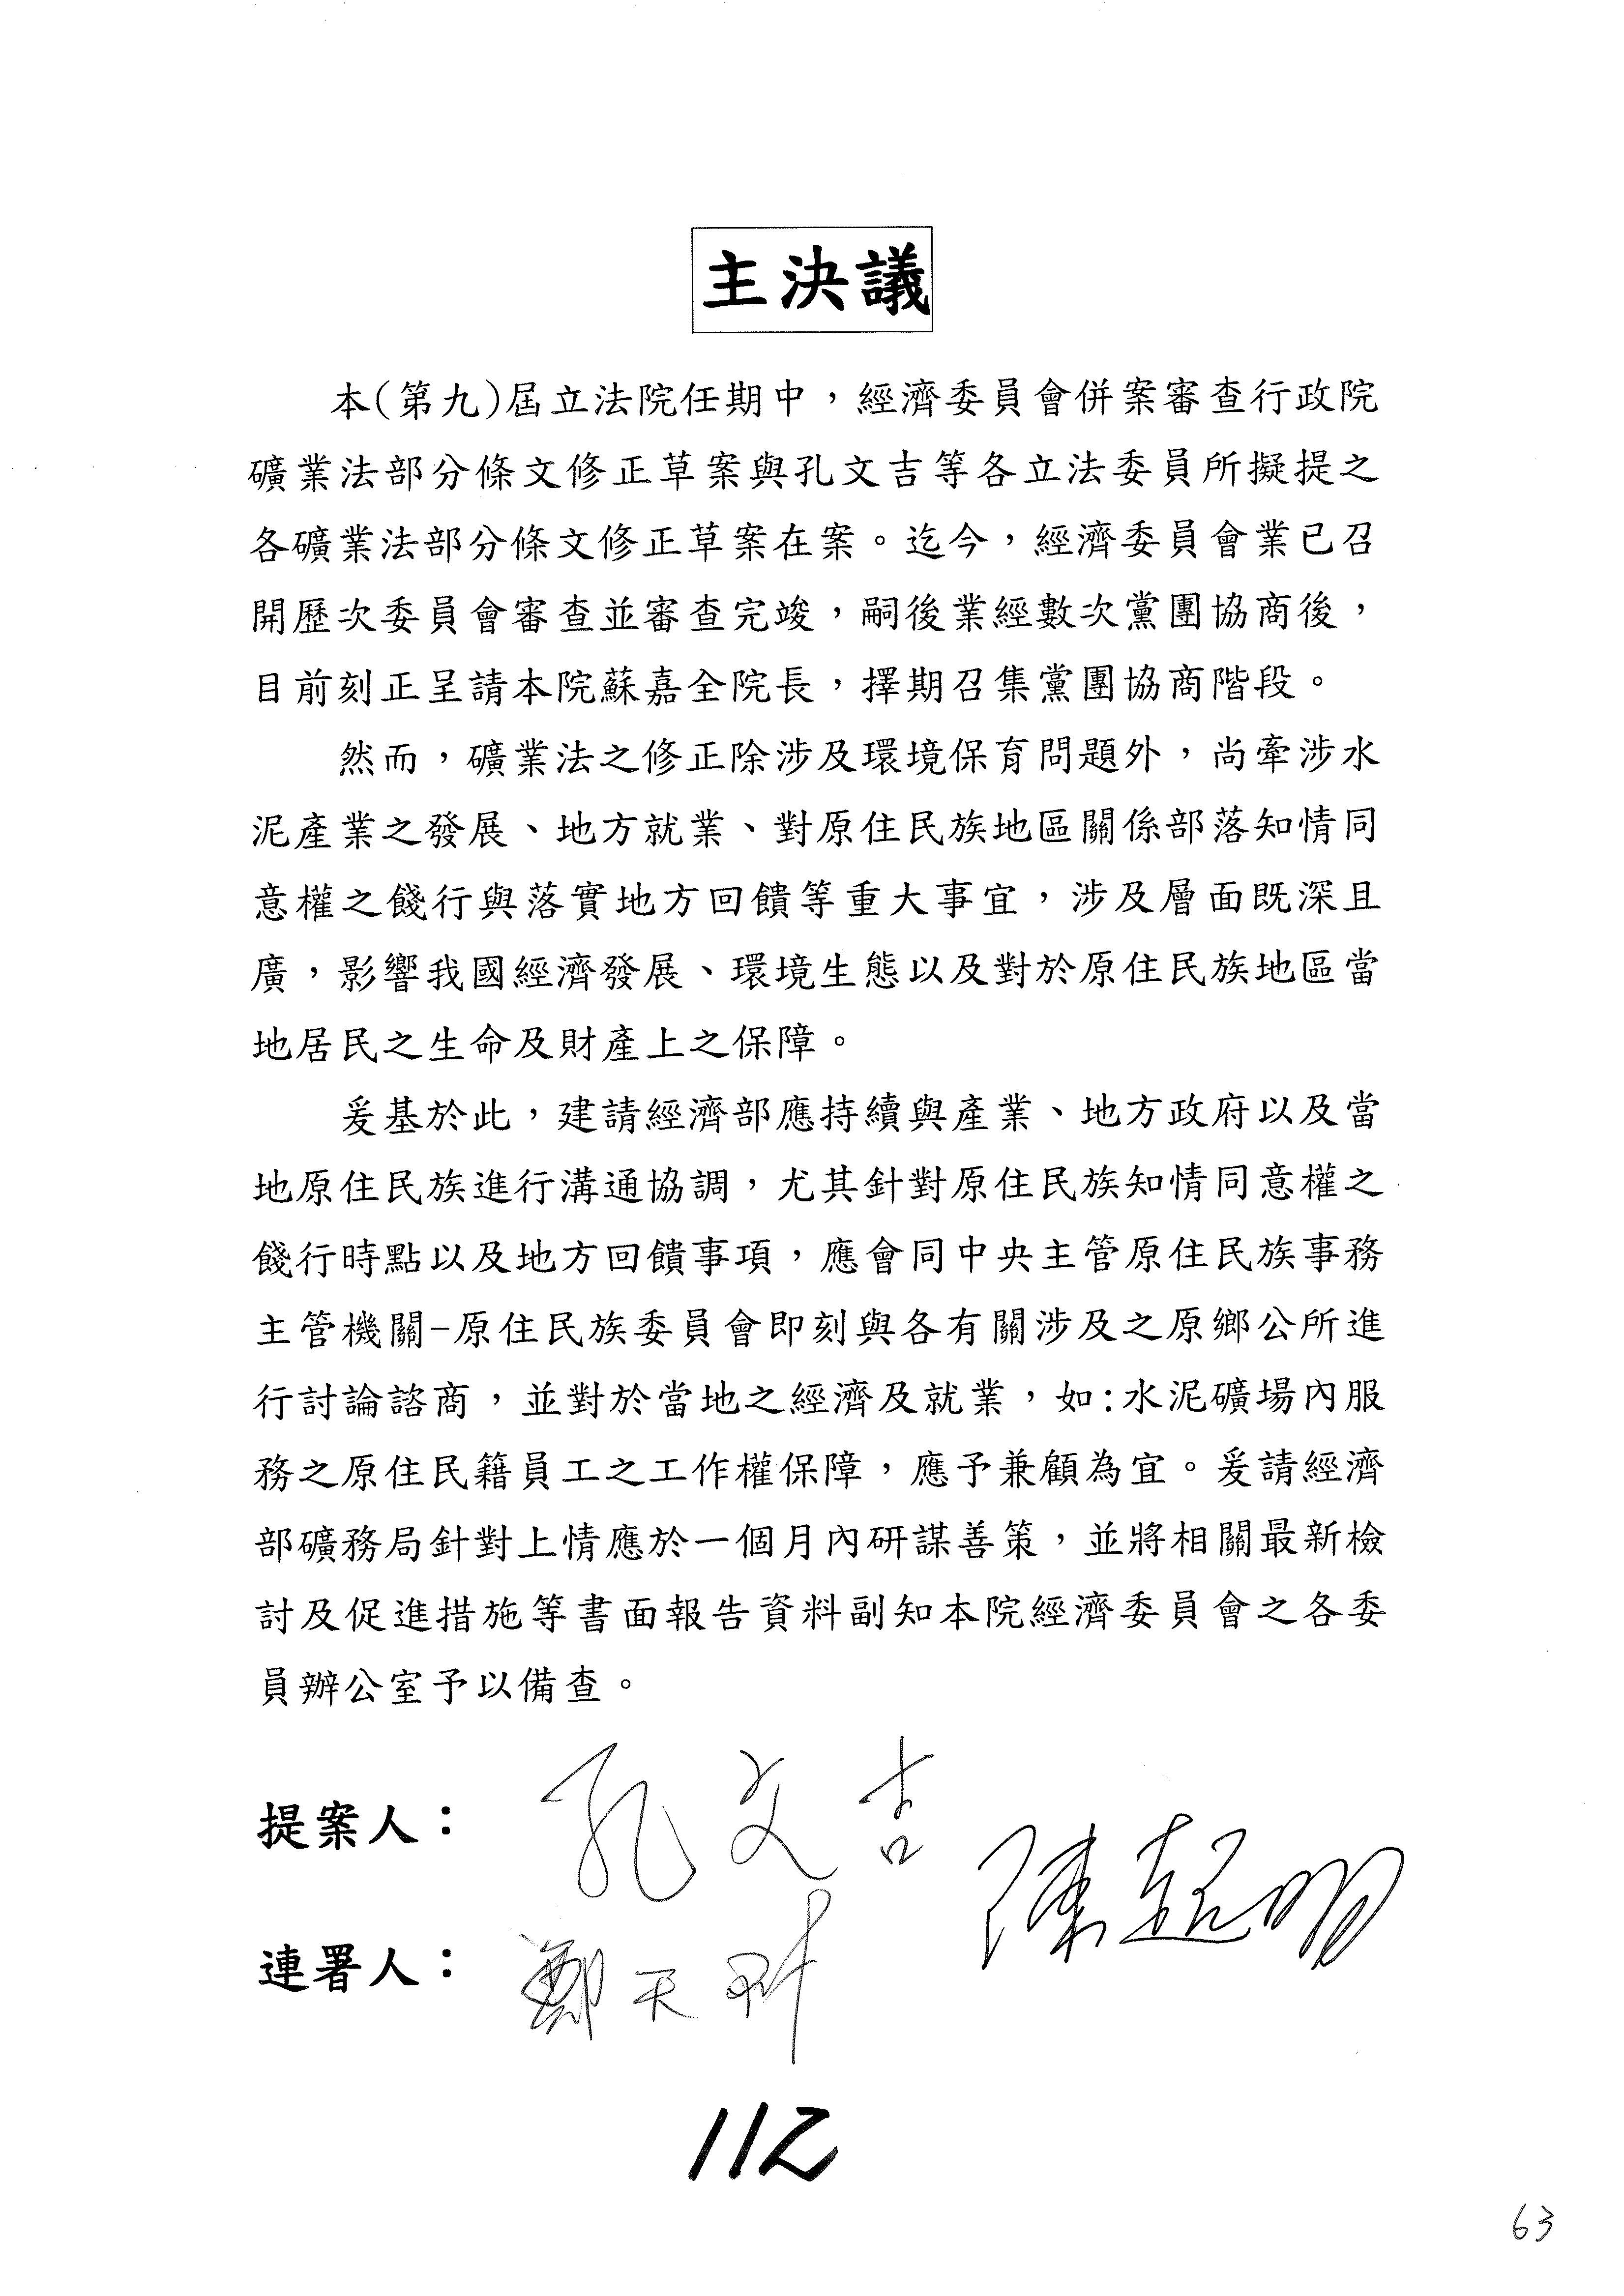 主決議
本(第九)屆立法院任期中，經濟委員會併案審查行政院
礦業法部分條文修正草案與孔文吉等各立法委員所擬提之
各礦業法部分條文修正草案在案。迄今，經濟委員會業已召
開歷次委員會審查並審查完竣，嗣後業經數次黨團協商後，
目前刻正呈請本院蘇嘉全院長，擇期召集黨團協商階段。
然而，礦業法之修正除涉及環境保育問題外，尚牽涉水
泥產業之發展、地方就業、對原住民族地區關係部落知情同
意權之餞行與落實地方回饋等重大事宜，涉及層面既深且
廣，影響我國經濟發展、環境生態以及對於原住民族地區當
地居民之生命及財產上之保障。
爰基於此，建請經濟部應持續與產業、地方政府以及當
地原住民族進行溝通協調，尤其針對原住民族知情同意權之
餞行時點以及地方回饋事項，應會同中央主管原住民族事務
主管機關-原住民族委員會即刻與各有關涉及之原鄉公所進
行討論諮商，並對於當地之經濟及就業，如:水泥礦場內服
務之原住民籍員工之工作權保障，應予兼顧為宜。爰請經濟
部礦務局針對上情應於一個月內研謀善策，並將相關最新檢
討及促進措施等書面報告資料副知本院經濟委員會之各委
員辦公室予以備查。
提案人： 孔文吉
陳超明
連署人： 鄭天財
112
63